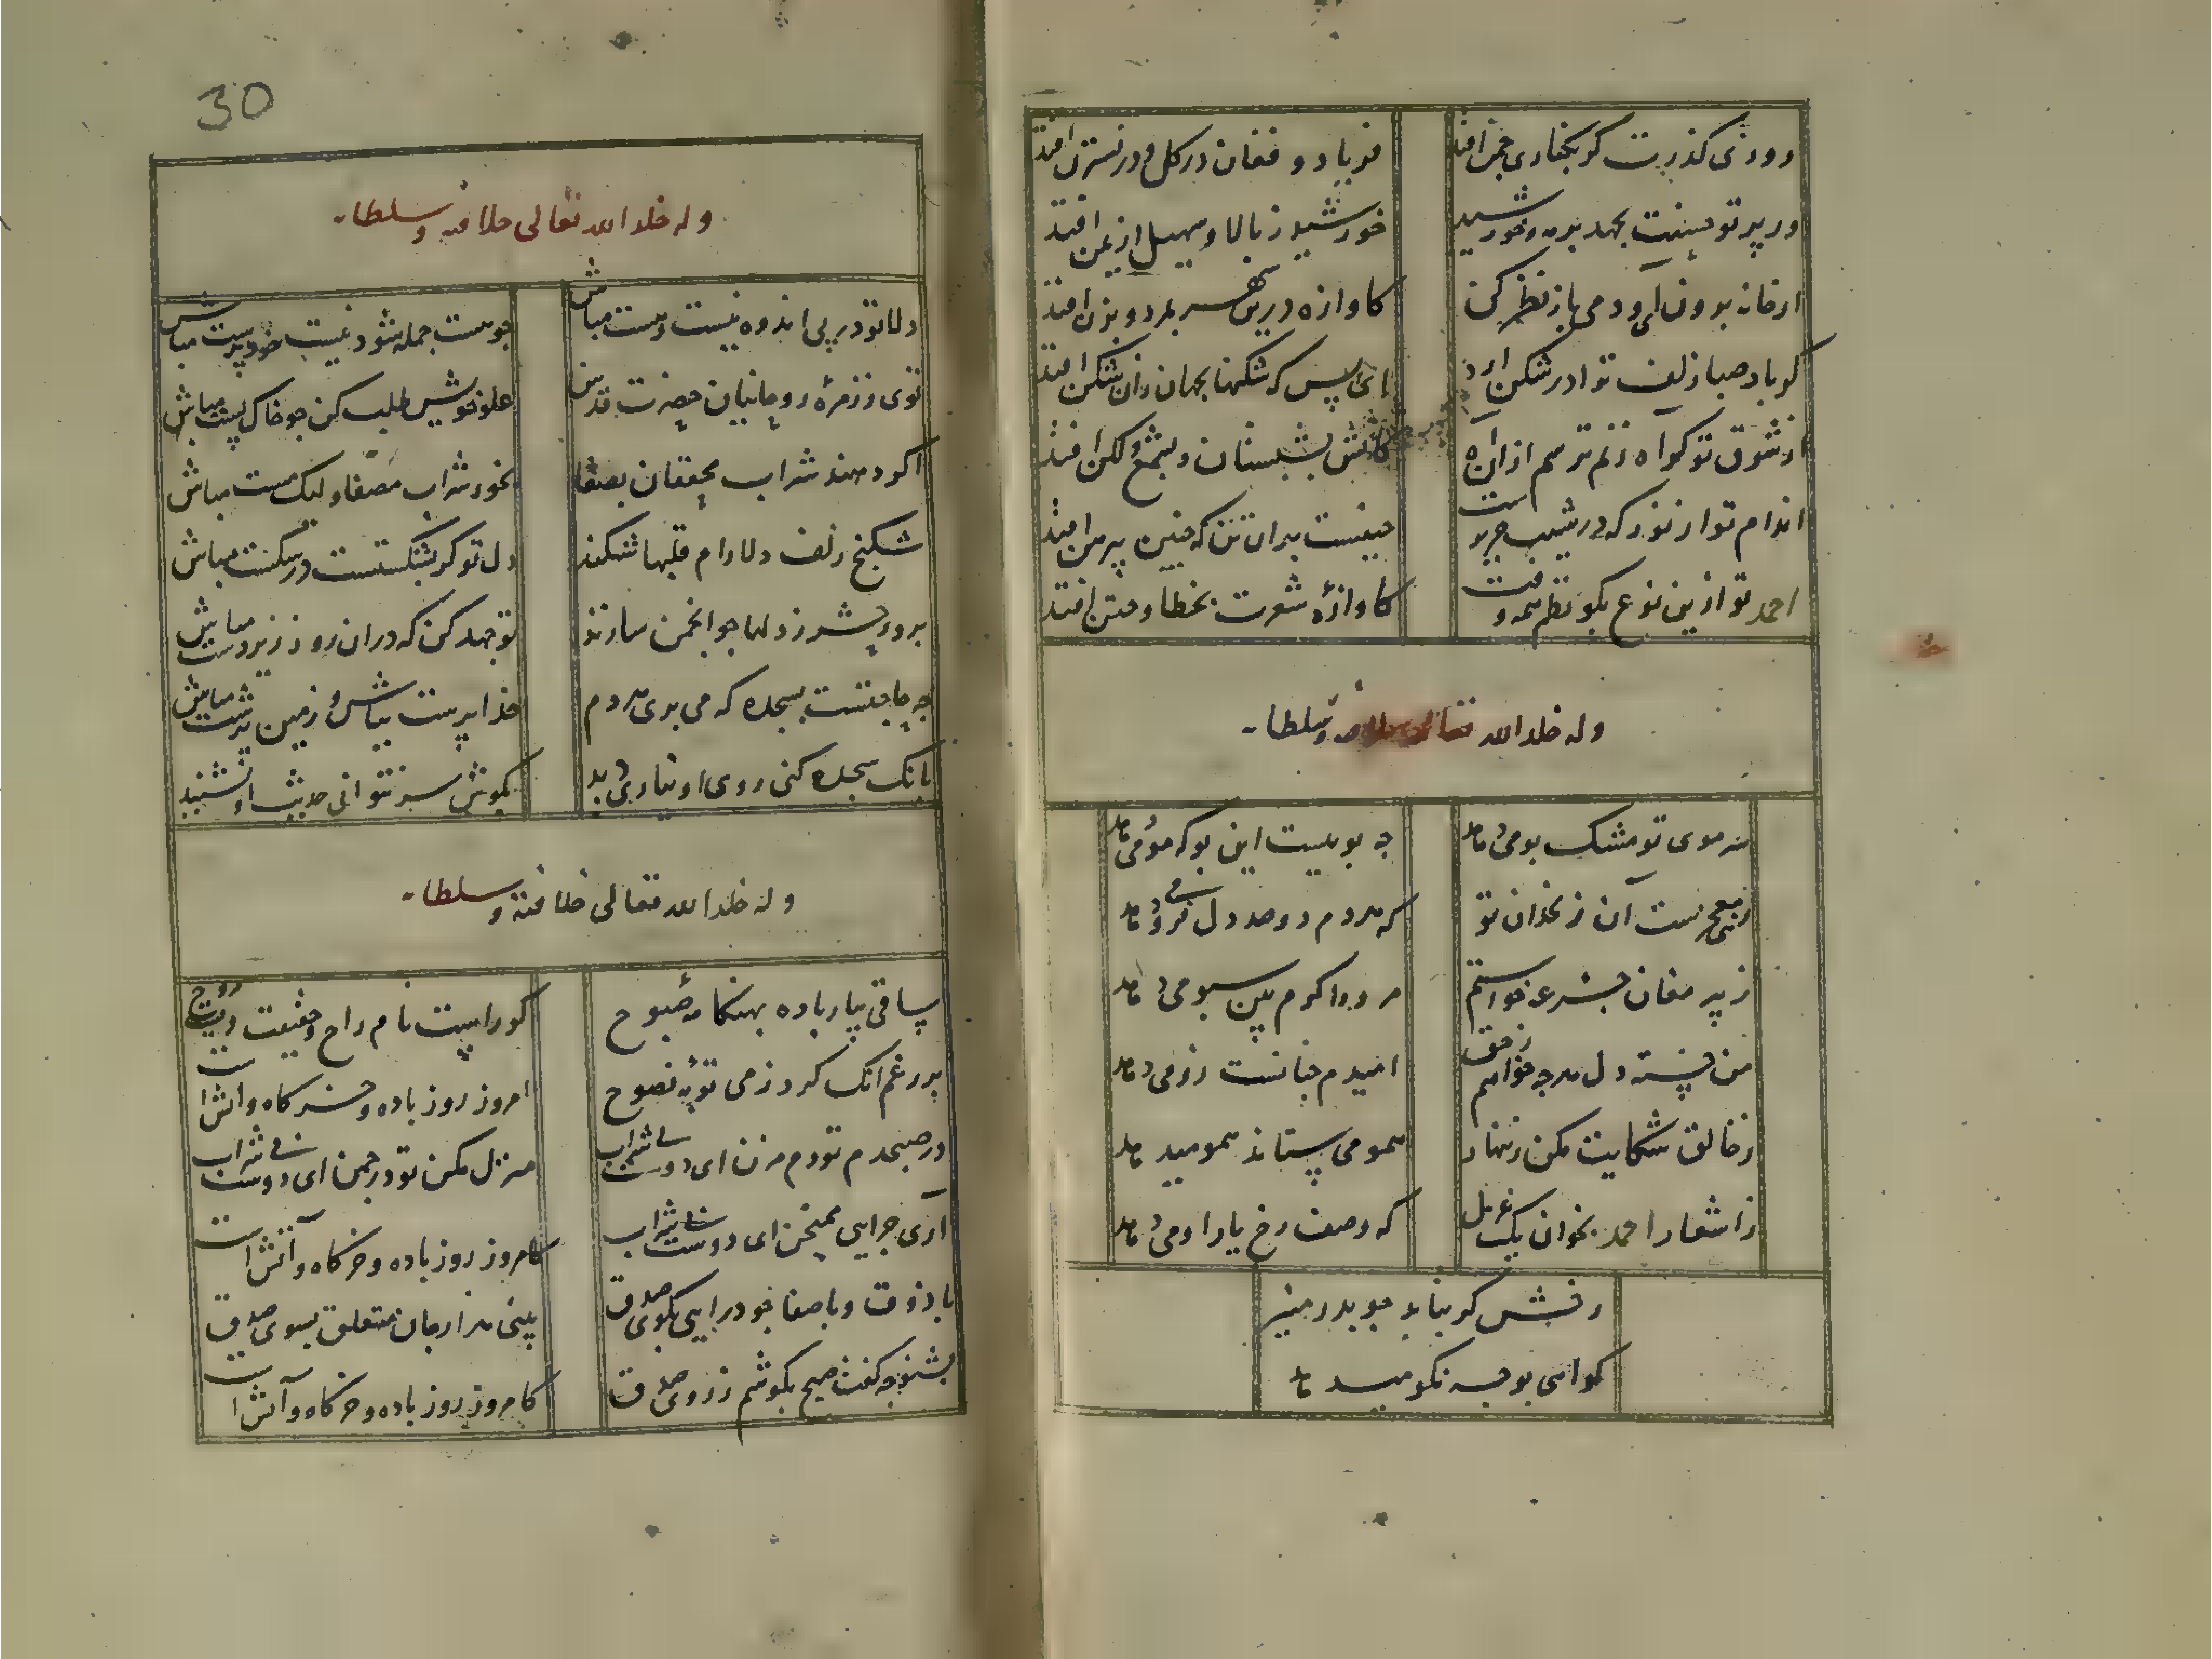 روزی گذرت گر بکناری چمن افتد
فریاد و فغان در گل و در نسترن افتد
ور پرتو حسنت بجهد بر مه و خورشید
خورشید ز بالا و سهیل از یمن افتد
از خانه برون آی و دمی باز نظر کن
کاوازه درین شهر بمرد و بزن افتد
گر باد صبا زلف ترا در شکن آرد
ای بس که شکنها بجهان زان شکن افتد
از شوق تو گر آه زنم ترسم از آن آه
کاتش بشبستان و بشمع و لکن افتد
اندام تو از نور که در شیب حریرست
حیفست بدان تن که چنین پیرهن افتد
احمد تو ازین نوع بگو نظم همه وقت
کاوازه شعرت بخطا و ختن افتد
وله خلد الله تعالی خلافته و سلطانه
ز موی تو مشک بو می دمد
چه بویست این بو که مو می دمد
معجزست آن زنخدان تو
که هر دم دو صد دل فرو می دمد
ز پیر مغان جرعه خواستم
مرا کرم بین سبو می دمد
من خسته دل هرچه خواهم ز حق
امیدم چنانست زو می دمد
ز خالق شکایت مکن زنهار
همو می ستاند همو میدمد
ز اشعار احمد بخوان یک غزل
که وصف رخ یار او می دمد
رقیبش گر بیاید چو بدر منیر
گواهی بوجه نکو میدمد
30
وله خلد الله تعالی خلافته و سلطانه
دلا تو در پی اندوه نیست و هست مباش
چو هست جمله شود نیست خودپرست مباش
توی ز زمره روحانیان حضرت قدس
علو خویش طلب کن چو خاک پست مباش
اگر دهند شراب محققان بصفا
بخور شراب مصفا و لیک مست مباش
شکنج زلف دلارام قلبها شکند
دل تو گر بشکستست در شکست مباش
بروز حشر ز دلها چو انجمن سازند
تو جهد کن که در آن روز زیردست مباش
چه حاجتست بسجده که می بری هر دم
خدا پرست بباش و زمین پرست مباش
بانک سجده کنی روی او نیاری دید
بگوش سر نتوانی حدیث او شنید
وله خلد الله تعالی خلافته و سلطانه
ساقی بیار باده بهنگامه صبوح
کو راست نام راح و حقیقت و راست روح
بر رغم آنک کرد ز می توبه نصوح
امروز روز باده و خرگاه و آتش است
در صبحدم تو دم مزن ای دوست بی شراب
منزل مکن تو در چمن ای دوست بی شراب
آری چرایی ممتحن ای دوست بی شراب
کامروز روز باده و خرگاه و آتش است
با ذوق و با صفا خود درآیی بکوی صدق
بینی هزار جان متعلق بسوی صدق
بشنو چه گفت صبح بگوشم ز روی صدق
کامروز روز باده و خرگاه و آتش است